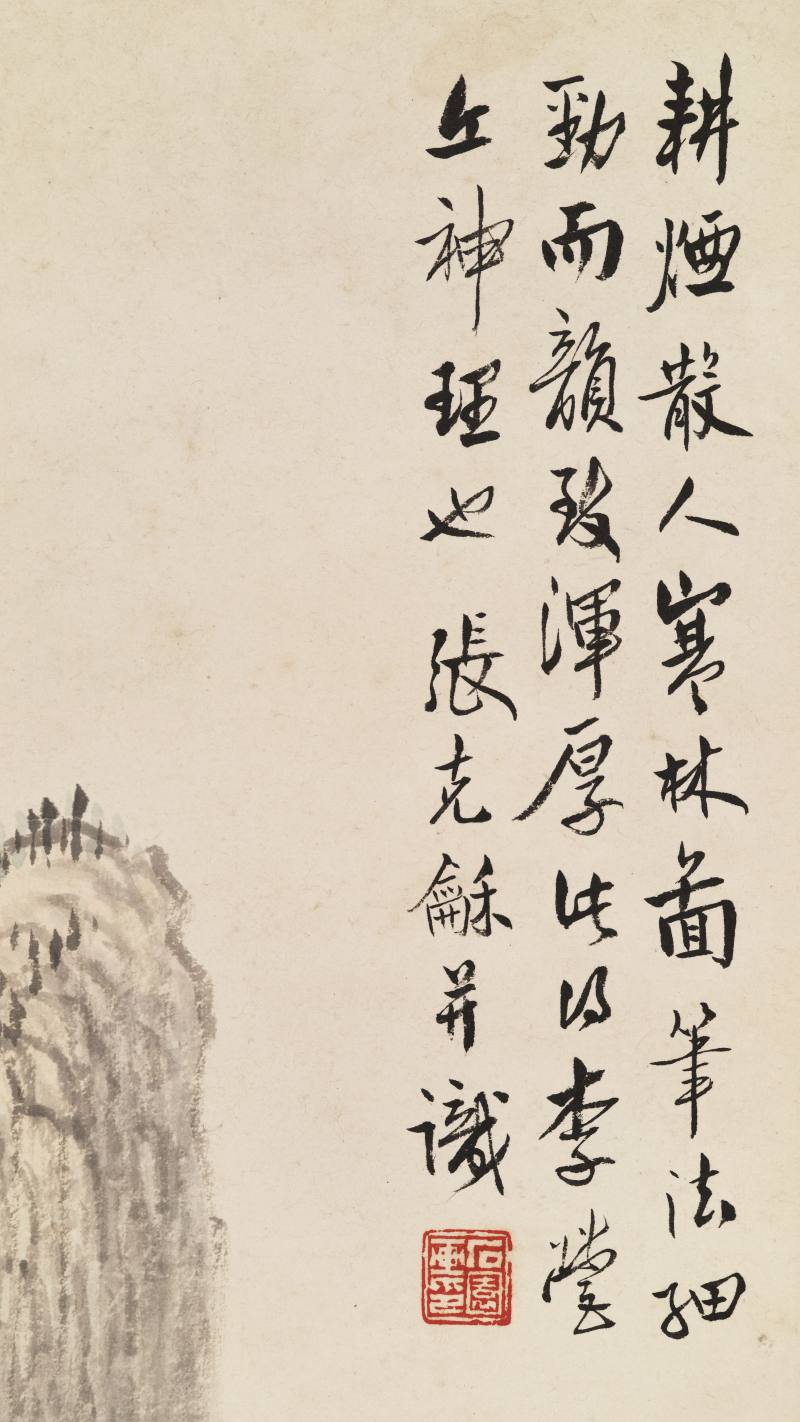 耕煙散人寒林圖筆法細
勁而韻致渾厚此得李營
丘神理也 張克龢并識
石園